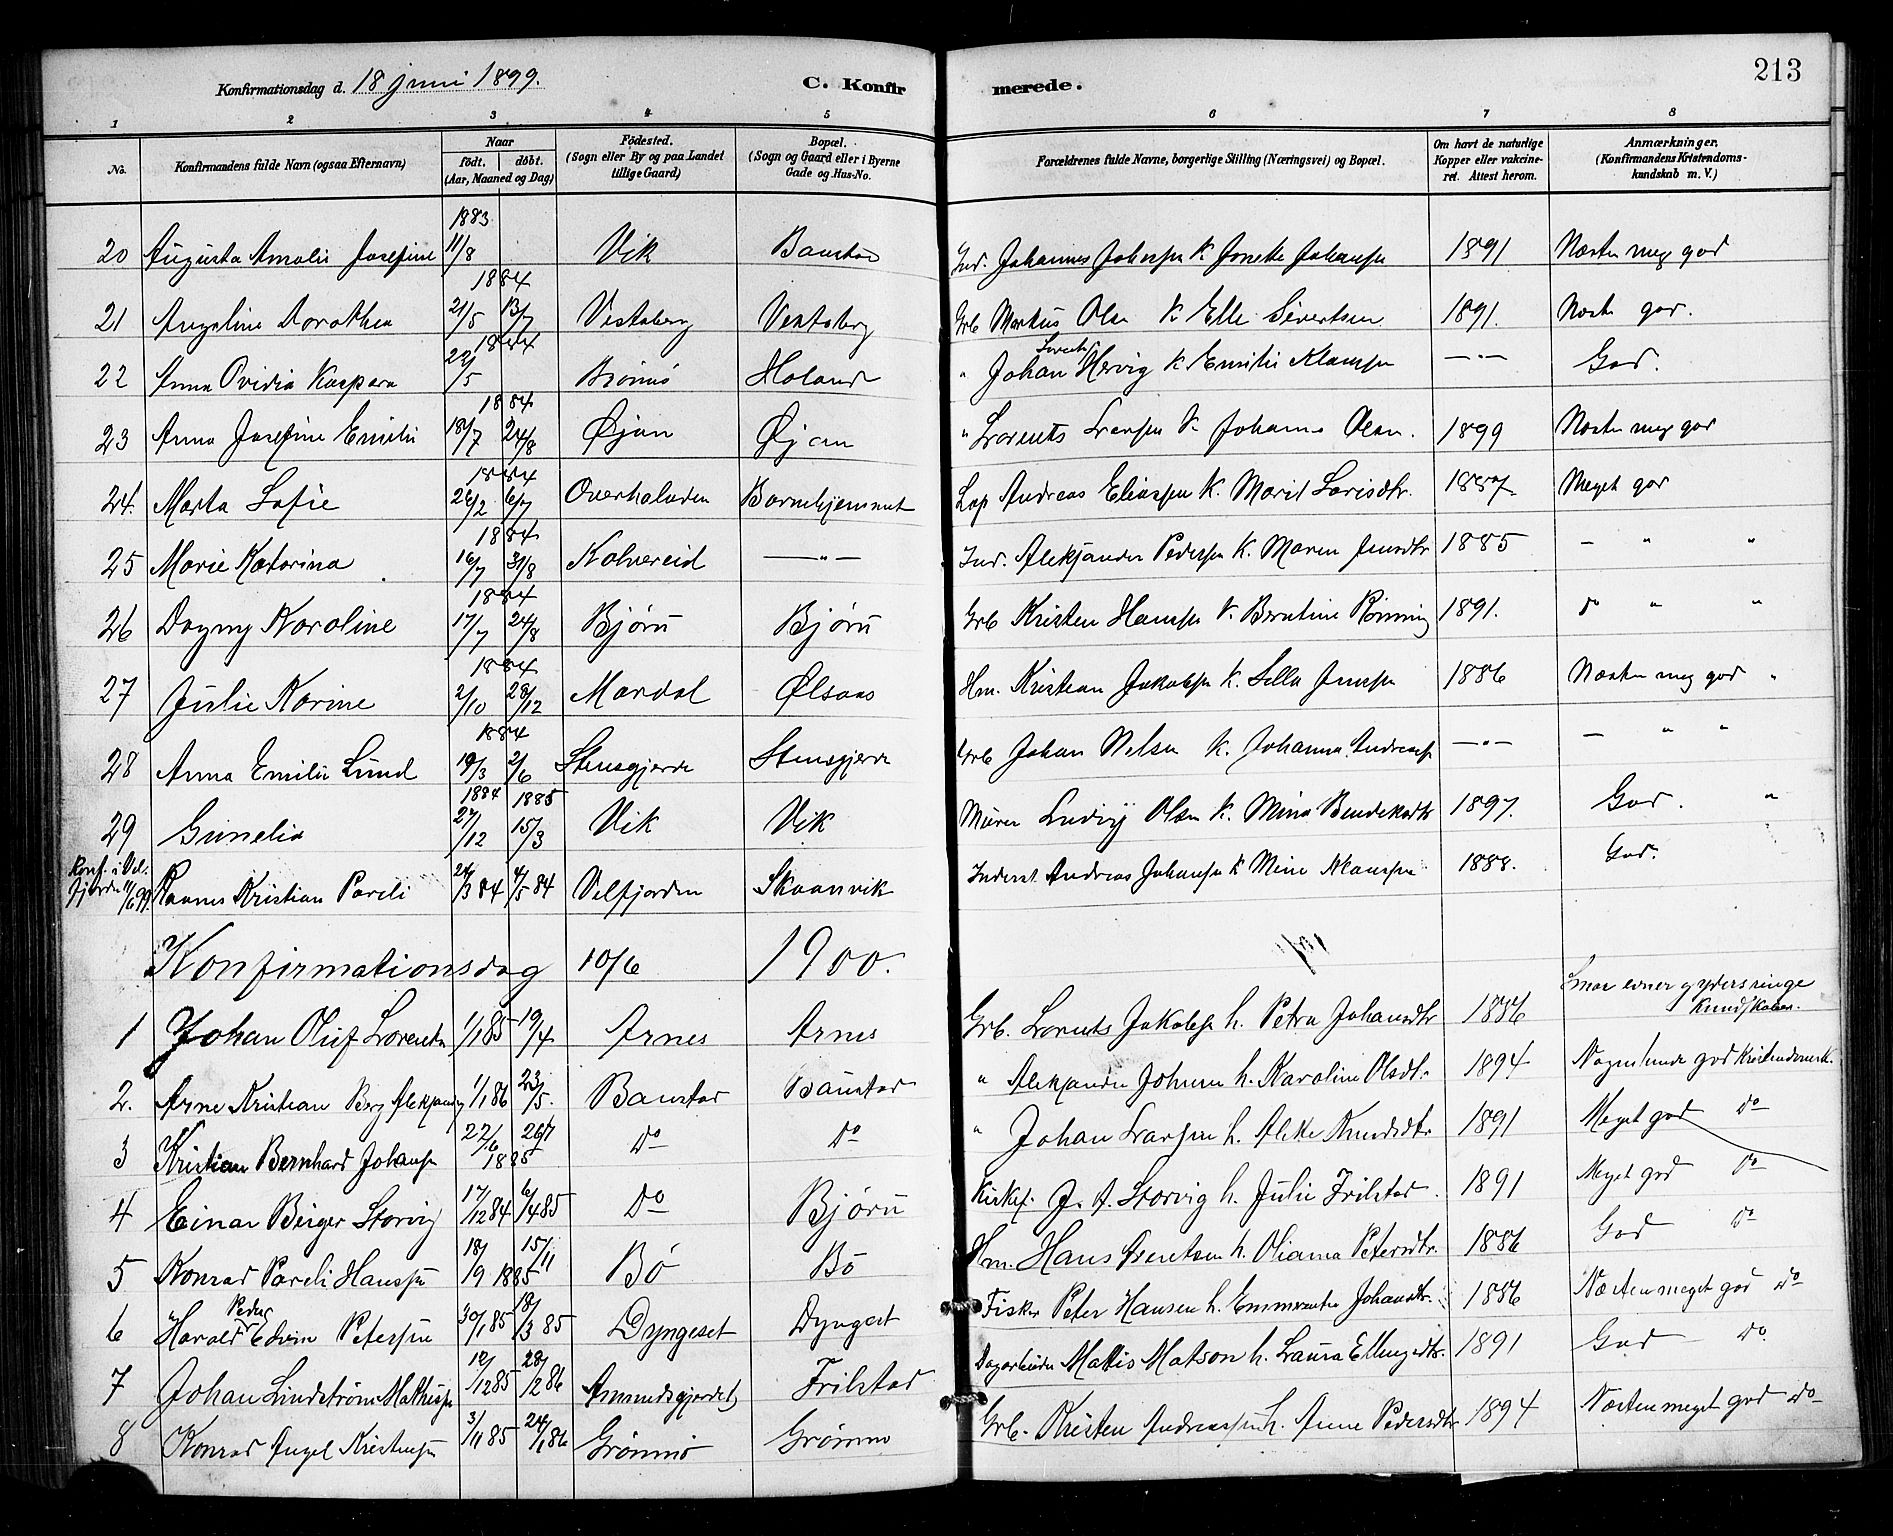 Konfirmationsdag d. 18 juni 1899. C. Konfirmerede. 213
1 2 3 4 5 6 7 8
No. Konfirmandens fulde Navn (ogsaa Efternavn) Naar födt. döbt. (Aar, Maaned og Dag) Födested. (Sogn eller By og paa Landet tillige Gaard) Bopæl. (Sogn og Gaard eller i Byerne Gade og Hus-No. Forældrenes fulde Navne, borgerlige Stilling (Næringsvei) og Bopæl. Om havt de naturlige Kopper eller vaccineret. Attest herom. Anmærkninger. (Konfirmandens Kristendomskundskab m. V.)
1883
20 Augusta Amalie Josefine 11/8 Vik Baustad Ind. Johannes Johnsen K Jonette Johansen 1891 Næsten meg god
1884
21 Angeline Dorothea 21/5 13/7 Vestaberg Vestaberg Grb Markus Olsen K Elle Sivertsen 1891. Næste god.
1884
22 Anna Ovidia Kaspara 22/5 Brönnö Holand " Johan Hervig K Emilie Klausen —"— God.
1884
23 Anna Josefine Emilie 18/7 24/8 Øjan Øjan " Lorents Larsen K Johanna Olsen. 1899 Næsten meg god
1884
24. Marta Sofie 26/2 6/7 Overhalvden Barnehjemmet Lap Andreas Eliassen K. Marit Larisdtr. 1887 Meget god
1884
25 Marie Katarina 16/7 31/8 Kolvereid —"— Ind. Aleksander Pedersen K. Maren Jensdtr 1885 — " "
1884
26 Dagny Karoline 17/7 24/8 Bjørn Bjørn Grb Kristen Hansen K. Berntine Rönning 1891. do " "
1884
27 Julie Karine 2/10 28/12 Mardal Ølsaas Hm. Kristian Jakobsen K. Silla Jensen 1886 Næsten meg god "
1884
28 Anna Emilie Lund 19/3 2/6 Stensgjerde Stensgjerde Grb Johan Nilsen K. Johanna Andreasen —"— — " "
1884 1885
29 Gunelia 27/12 15/3 Vik Vik Murer Ludvig Olsen K. Mina Bendiksdtr 1897. God. "
Konf. i Vel-
fjorden 11/6 99. Raanes Kristian Pareli 24/3 84 4/5 84 Velfjorden Skaanvik Inderst Andreas Johansen K Mine Klausen 1888. God.
Konfirmationsdag 10/6 1900.
1 Johan Oluf Lorents 1/1 85 19/4 Arnes Arnes Grb. Lorents Jakobsen h. Petra Johansdtr 1886 Smaa evner og yders ringe Kundskaber.
2. Arne Kristian Berg Aleksanders 1/1 86 23/5. Baustad Baustad " Aleksander Johnsen h. Karoline Olsdtr 1894 Nogenlunde god Kristendomsk.
3 Kristian Bernhard Johansen 22/6 26/7 1885 Do Do " Johan Larsen h. Aleke Knudsdtr 1891 Meget god do
4 Einar Birger Storvig 17/12 84 6/4 85 Do Bjørn Kirkes. J. A. Storvig h. Julie Frilstad. 1891 Meget god do
5 Konrad Pareli Hansen 18/9 15/11 1885 Bö Bö Hm. Hans Arentsen h. Oliana Petersdtr. 1886 God do
6 Harald Peder Edvin Petersen 30/1 85 18/3 85 Dyngeset Dyngest Fisker Peter Hansen h. Emmerentse Johansdtr. 1886 Næsten meget god do
7 Johan Lindström Mathisen 19/12 85 28/12 86 Amundsgjerdet Frilstad Dagarbeider Mattis Matson h. Laura Ellingsdtr. 1891 God do
8 Konrad Angel Kristensen 3/11 85 24/1 86 Grönnö Grönno Grb. Kristen Andreassen h. Anne Pedersdtr 1894 Næsten meget god do